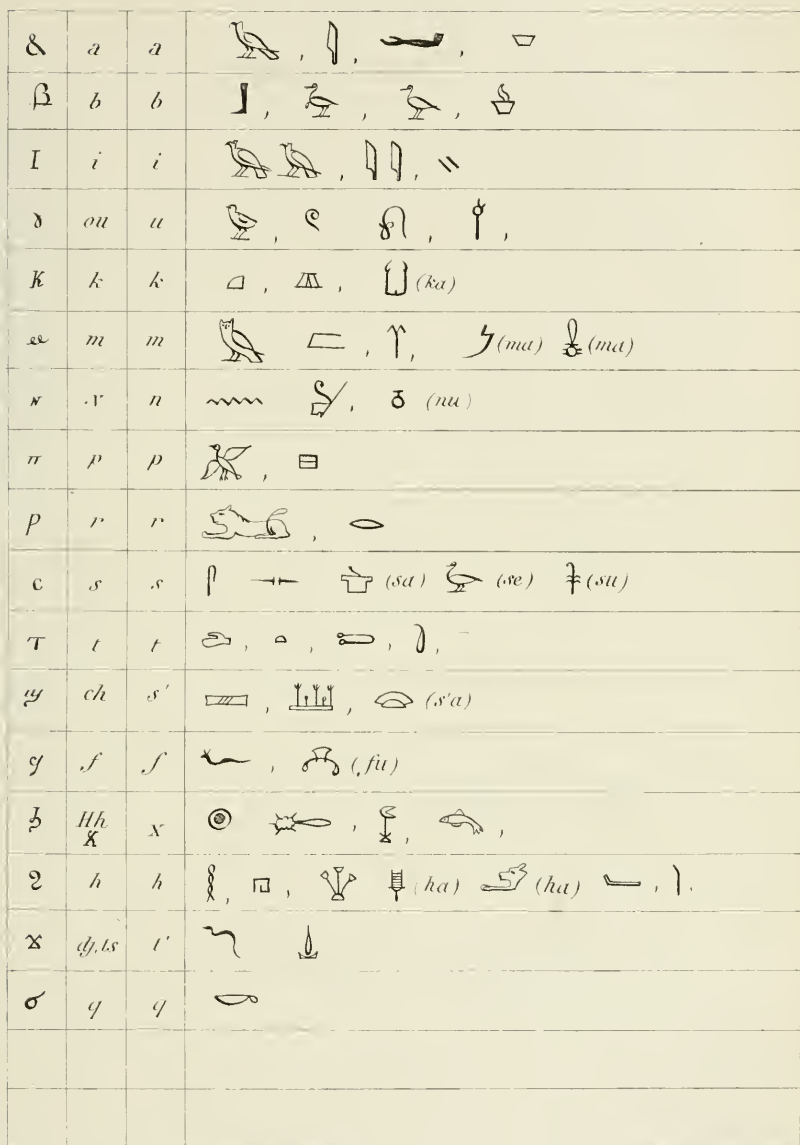 ⲁ a a 𓄿 , 𓇋 , 𓂝 , 𓎟
ⲃ b b 𓃀 , 𓅡 , 𓅬 , 𓊸
ⲓ i i 𓄿𓄿 , 𓇋𓇋 , 𓏭
ⲟⲩ ou u 𓅱 , 𓏲 𓍯 , 𓌅 ,
ⲕ k k 𓈎 , 𓎼 , 𓂓 (ka)
ⲙ m m 𓅓 𓐝 , 𓄟 , 𓌳 (ma) 𓍃 (ma)
ⲛ N n 𓈖 𓋔 , 𓏌 (nu)
ⲡ p p 𓅮 , 𓊪
ⲣ r r 𓃭 , 𓂋
ⲥ s s 𓋴 𓊃 𓐠 (sa) 𓅭 (se) 𓇓 (su)
ⲧ t t 𓂧 , 𓏏 , 𓍿 , 𓍘 ,
ϣ ch s' 𓈙 , 𓆷 , 𓈍 (s'a)
ϥ f f 𓆑 , (fu)
ϧ Hh X x 𓐍 𓄡 , 𓆼 , 𓆞 ,
ϩ h h 𓎛 , 𓉔 , 𓇉 𓎝 (ha) 𓄂 (ha)
ϫ dj, ts t' 𓆓 𓍑
ϭ q q 𓎡